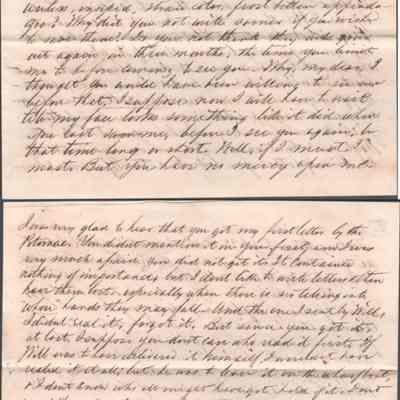 gone? Why did you not write sooner if you wish
to now them? Do you not think they will give
out again in three months, the time you limit
me to before coming to see you. Why, my dear, I
thought you would have been willing to see me
before that. I suppose now I will have to wait
till my face looks something like it did when
you last saw me, before I see you again, be
that time long or short. Well, if I must I
must. But you have no mercy upon me.
I was very glad to hear that you got my first letter by the
Potomac. You didn't mention it in your first, and I was
very much afraid you did not get it. It contained
nothing of importance but I don't like to write letters & then
have them lost, especially when there is no telling into
whose hands they may fall. And the one I sent by Will,
I didn't seal it, forgot it. But since you got it
at last I suppose you don't care who read it first. If
Will was to have delivered it himself I wouldn't have
sealed it at all; but he was to leave it
& I don't know who all might have got hold of it. I don't